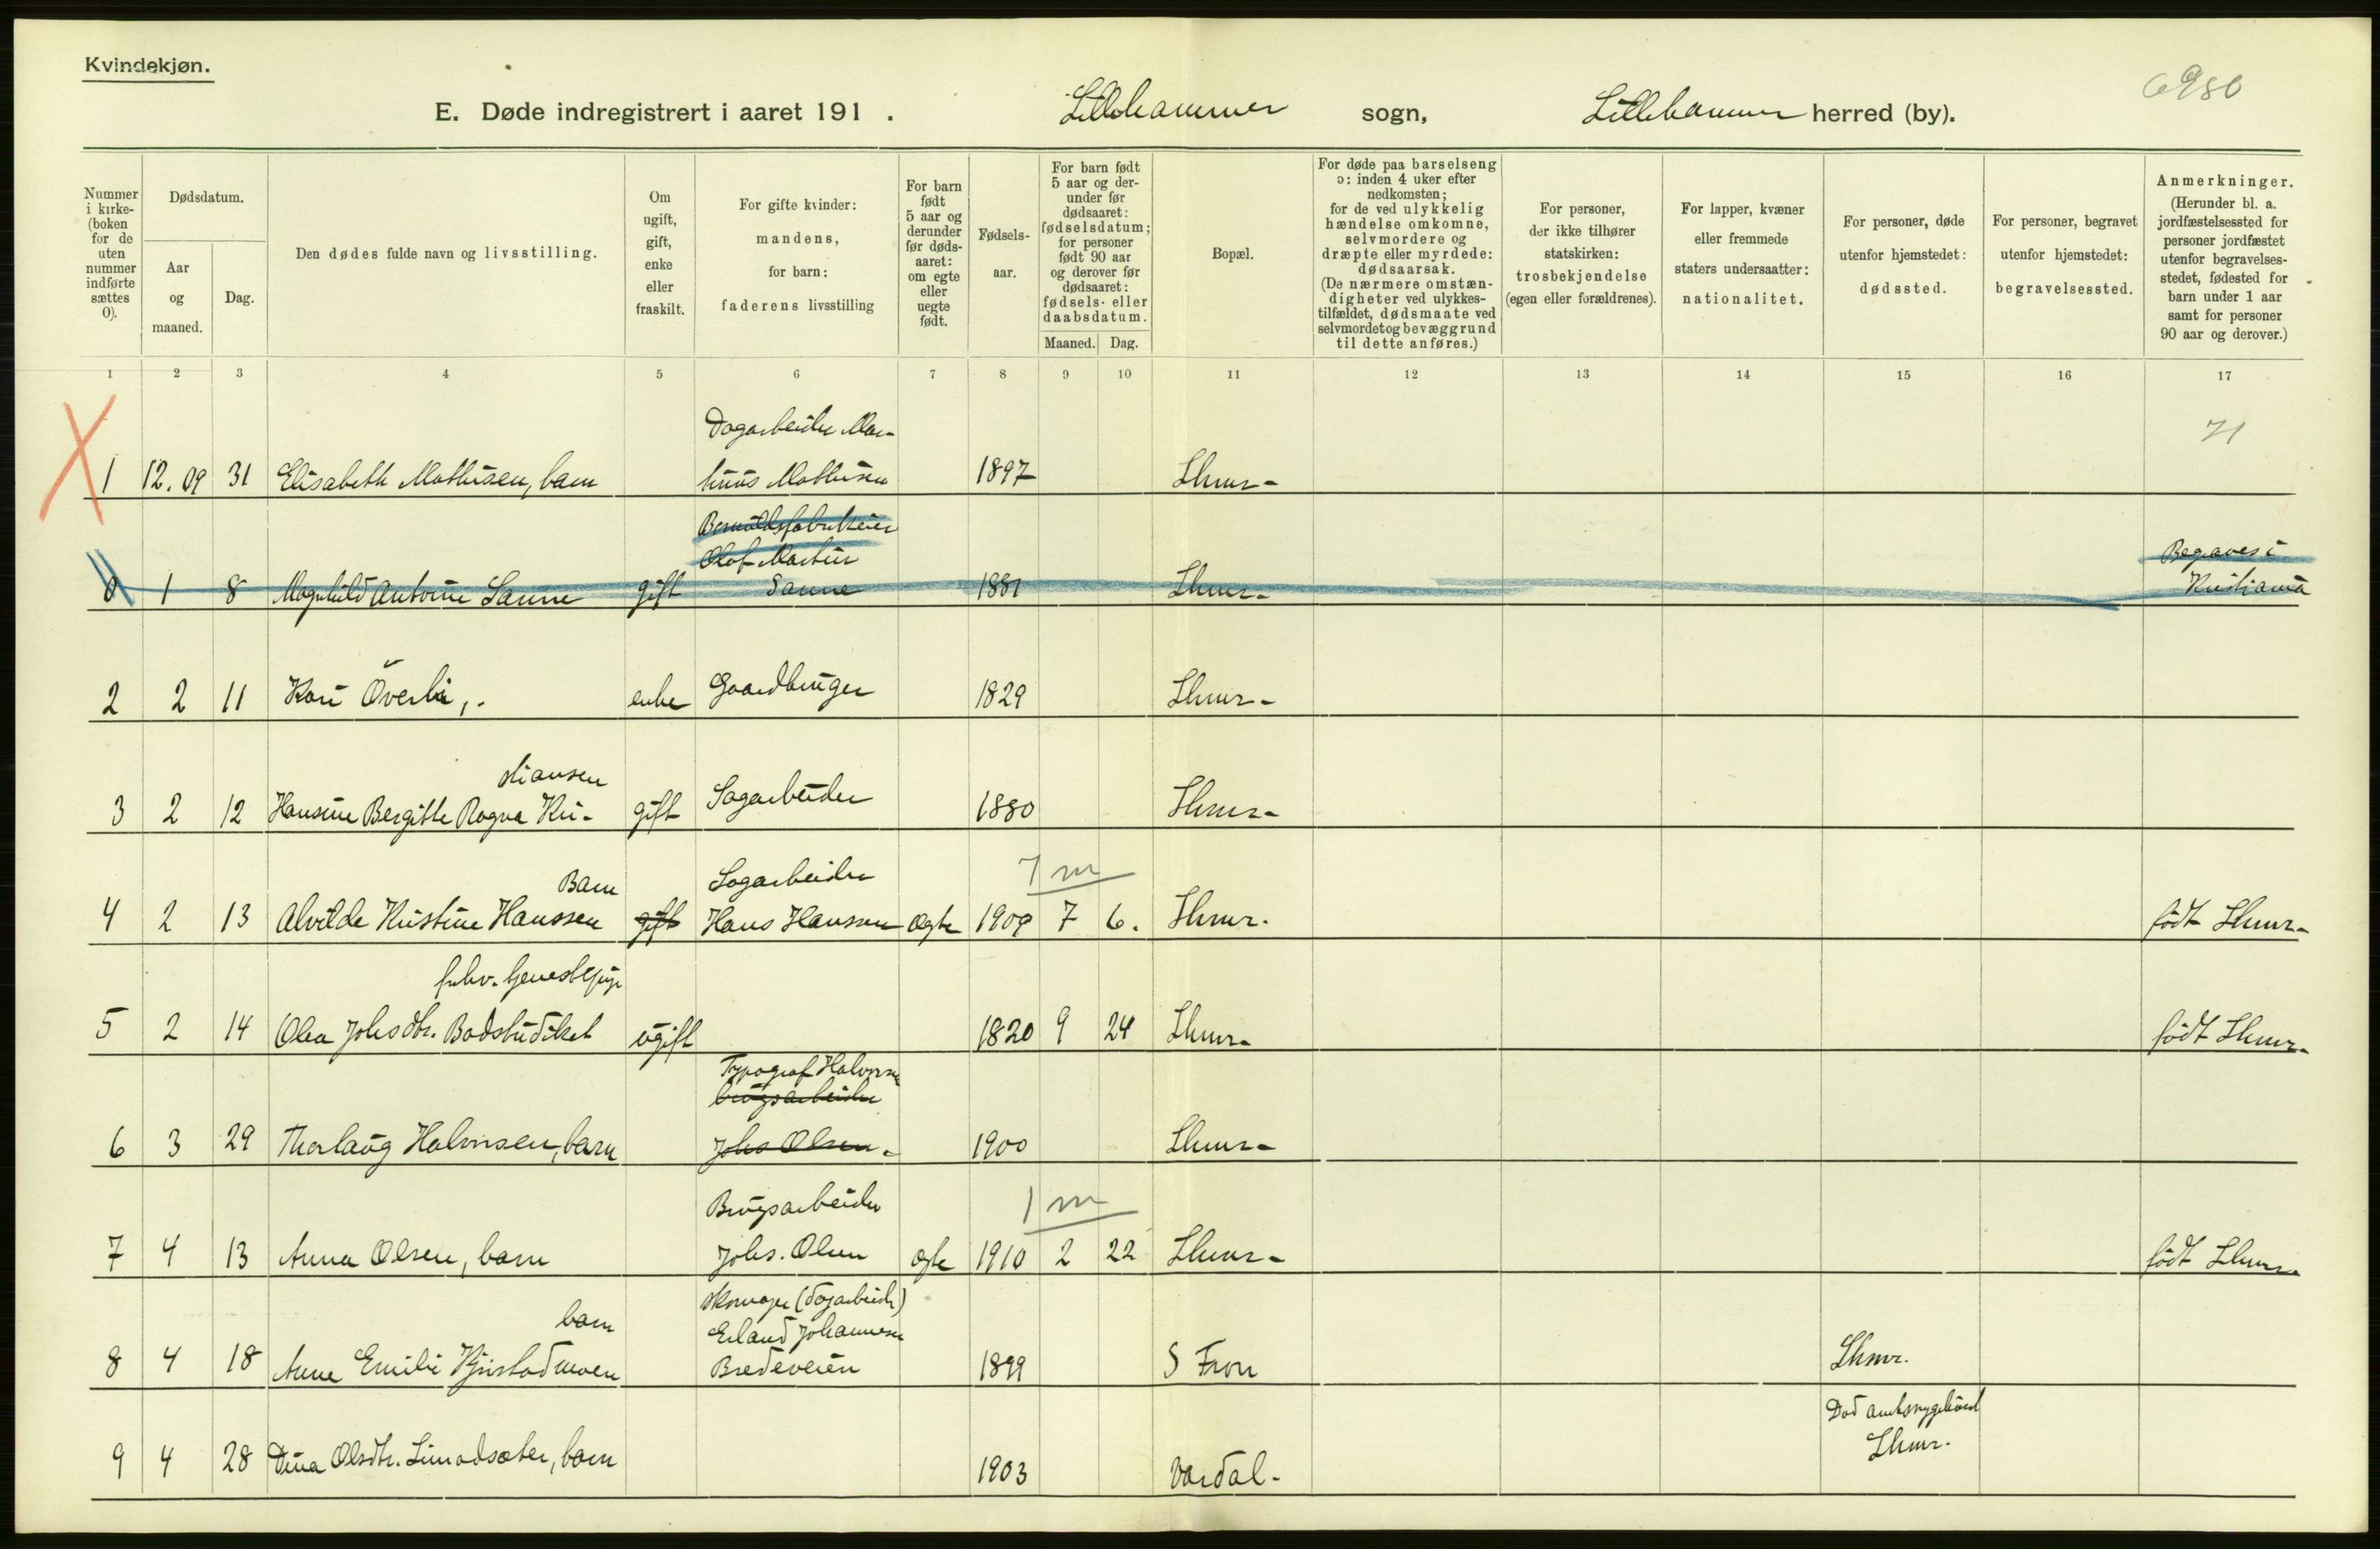 Kvindekjøn.
6980
E. Døde indregistrert i aaret 191 . Lillehammer sogn, Lillehammer herred (by).
Nummer i kirke- (boken for de uten nummer indførte sættes 0).
Dødsdatum.
Aar og maaned.
Dag.
Den dødes fulde navn og livsstilling.
Om ugift, gift, enke eller fraskilt.
For gifte kvinder: mandens, for barn: faderens livsstilling
For barn født 5 aar og derunder før døds- aaret: om egte eller uegte født.
Fødsels- aar.
For barn født 5 aar og der- under før dødsaaret: fødselsdatum; for personer født 90 aar og derover før dødsaaret: fødsels- eller daabsdatum.
Maaned. Dag.
Bopæl.
For døde paa barselseng ɔ: inden 4 uker efter nedkomsten; for de ved ulykkelig hændelse omkomne, selvmordere og dræpte eller myrdede: dødsaarsak. (De nærmere omstæn- digheter ved ulykkes- tilfældet, dødsmaate ved selvmordet og bevæggrund til dette anføres.)
For personer, der ikke tilhører statskirken: trosbekjendelse (egen eller forældrenes).
For lapper, kvæner eller fremmede staters undersaatter: nationalitet.
For personer, døde utenfor hjemstedet: dødssted.
For personer, begravet utenfor hjemstedet: begravelsessted.
Anmerkninger. (Herunder bl. a. jordfæstelsessted for personer jordfæstet utenfor begravelses- stedet, fødested for barn under 1 aar samt for personer 90 aar og derover.)
1 2 3 4 5 6 7 8 9 10 11 12 13 14 15 16 17
Dagarbeider Mar-
71
1 12.09 31 Elisabeth Mathisen, barn tinus Mathisen 1897 Lhmr-
Olof Martin
Begraves i
0 1 8 Magnhild Antonie Sanne gift Sanne 1881 Lhmr- Kristiania
2 2 11 Kari Överli,. enke Gaardbruger 1829 Lhmr-
stiansen
3 2 12 Hansine Bergitte Ragna Kri- gift Sagarbeider 1880 Lhmr-
Barn Sagarbeider 7 m
4 2 13 Alvilde Kristine Hanssen gift Hans Hanssen Ægte 1909 7 6. Lhmr. født Lhmr-
5 2 14 Olea Johsdtr. Badstudiket ugift 1820 9 24 Lhmr- født Lhmr-
Typograf Halvorsen
brugsarbeider
6 3 29 Thorlaug Halvorsen, barn Johs Olsen. 1900 Lhmr-
Brugsarbeider 1 m
7 4 13 Anna Olsen, barn Johs. Olsen Ægte 1910 2 22 Lhmr- født Lhmr-
skomager (dagarbeider)
barn Erland Johannesen Lhmr.
8 4 18 Anne Emilie Bredeveien 1899 S Fron
Død amtssygehuset
Lhmr.
9 4 28 Dina Olsdtr. barn 1903 Vardal-